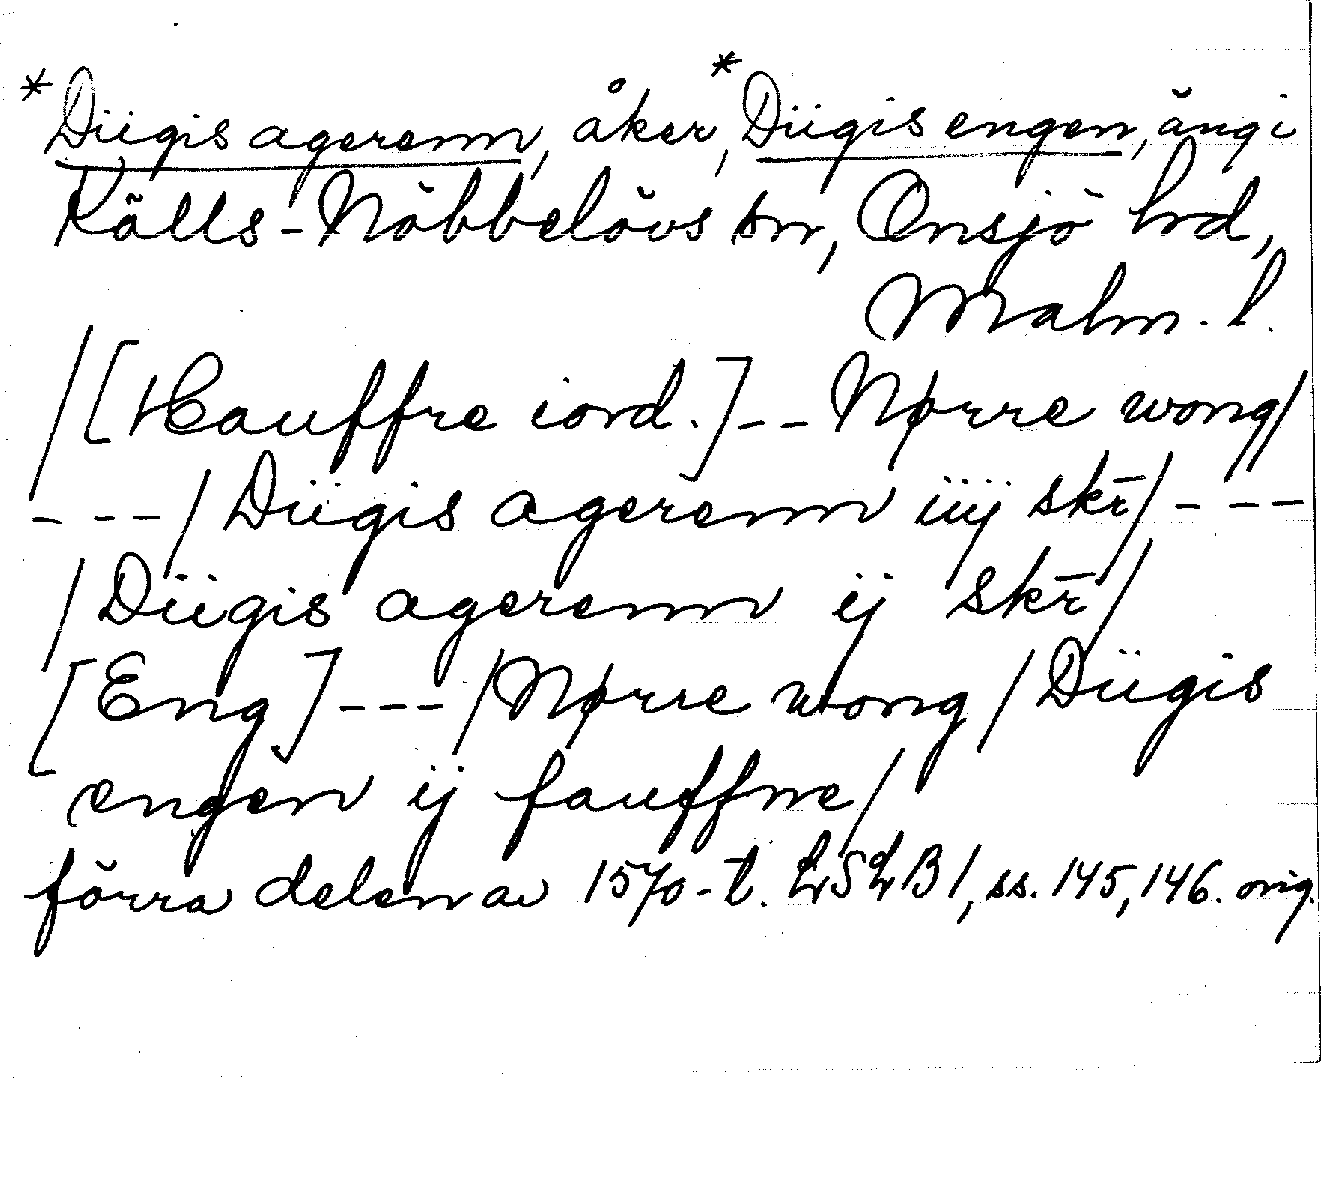 *Diigis agerenn, åker, *Diigis engen, äng i
Källs-Nöbbelövs sn, Onsjö hrd,
Malm. l.
/[Hauffre iord.]-- Nørre wong/
---/Diigis agerenn iiij skr̄/---
/Diigis agerenn ij skr̄/
[Eng]---/Nørre wong/Diigis
engen ij fauffne/
förra delen av 1570-t. LSLB 1, ss. 145, 146. orig.